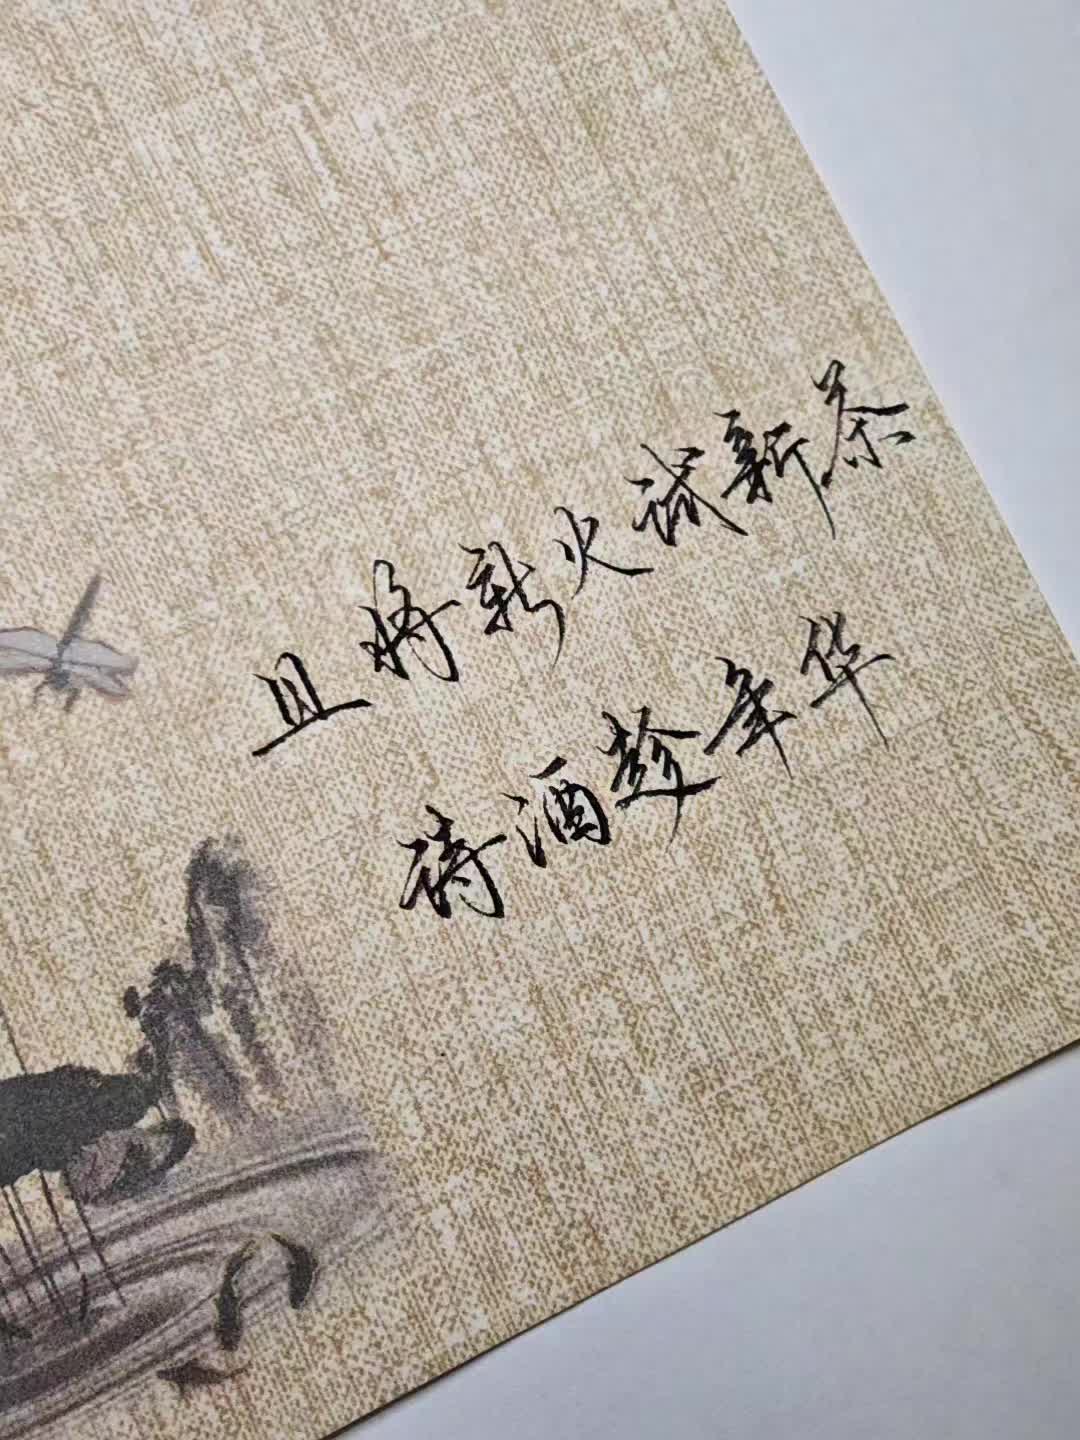 且将新火试新茶
诗酒趁年华